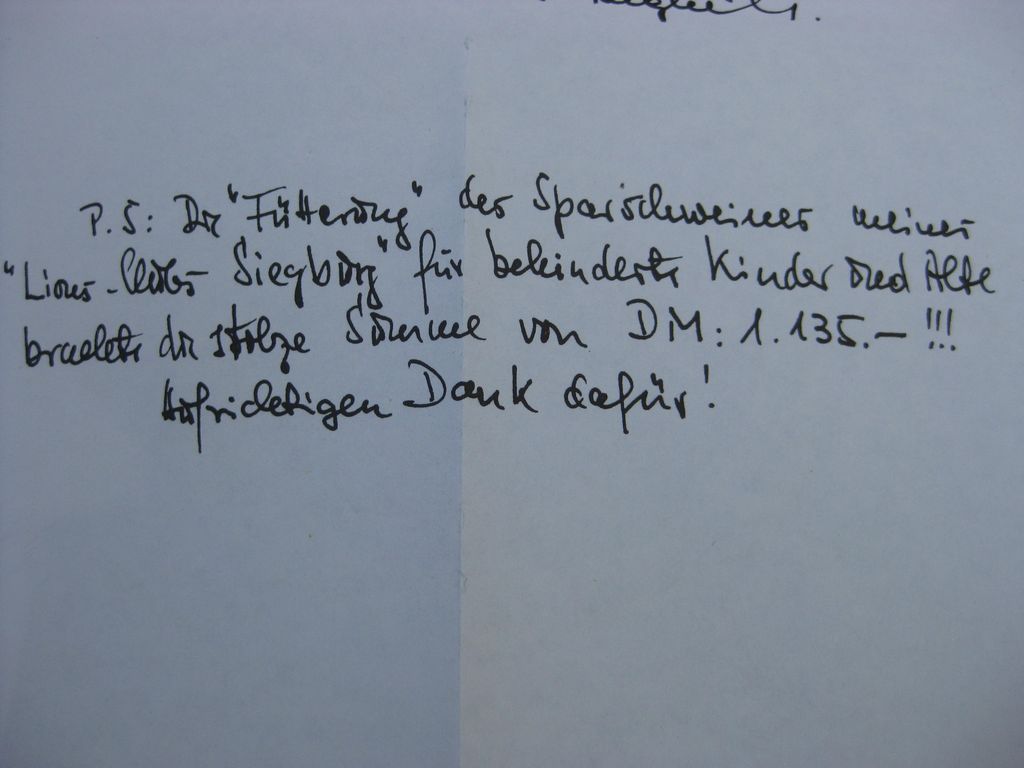 P.S: Die "Fütterung" des Sparschweines meines
"Lions-Clubs Siegburg" für behinderte Kinder und Alte
brachte die stolze Summe von DM: 1.135.- !!!
Aufrichtigen Dank dafür!